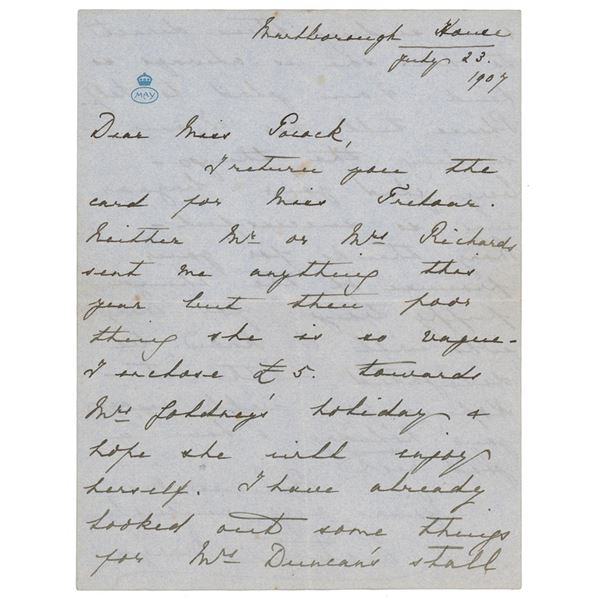 Marlborough House
July 23.
1907
MAY
Dear Miss Pocock,
I return you the
card for Miss Treloar.
Neither Mr or Mrs Richards
sent me anything this
year but then poor
thing she is so vague-
I enclose £5. towards
Mrs Goldney's holiday &
hope she will enjoy
herself. I have already
looked out some things
for Mrs Duncan's stall